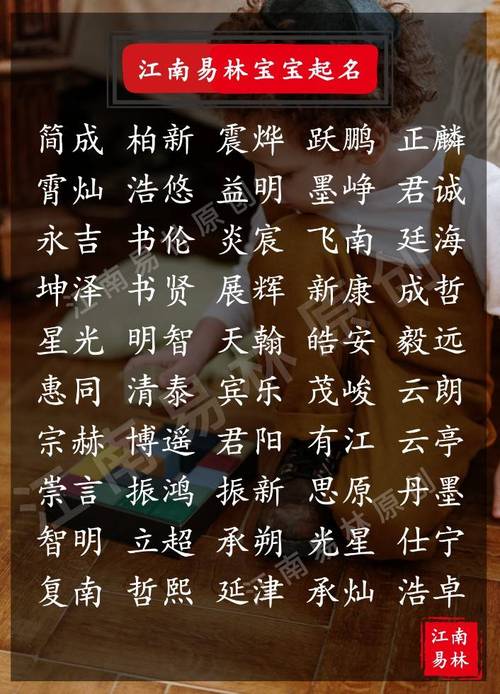 江南易林宝宝起名
简成 柏新 震烨 跃鹏 正麟
霄灿 浩悠 益明 墨峥 君诚
永吉 书伦 炎宸 飞南 廷海
坤泽 书贤 展辉 新康 成哲
星光 明智 天翰 皓安 毅远
惠同 清泰 宾乐 茂峻 云朗
宗赫 博遥 君阳 有江 云亭
崇言 振鸿 振新 思原 丹墨
智明 立超 承朔 光星 仕宁
复南 哲熙 延津 承灿 浩卓
江南
易林
江南易林原创
江南易林原创
江南易林原创